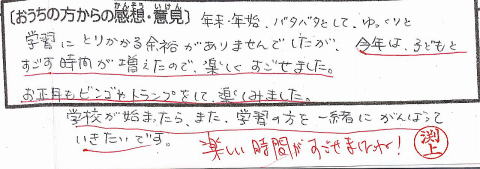 [おうちの方からの感想・意見] 年末・年始、バタバタとして、ゆっくりと
学習にとりかかる余裕がありませんでしたが、今年は、子どもと
すごす時間が増えたので、楽しくすごせました。
お正月もビンゴやトランプをして、楽しみました。
学校が始まったら、また、学習の方を一緒にがんばって
いきたいです。
楽しい時間がすごせましたね！ 渕上